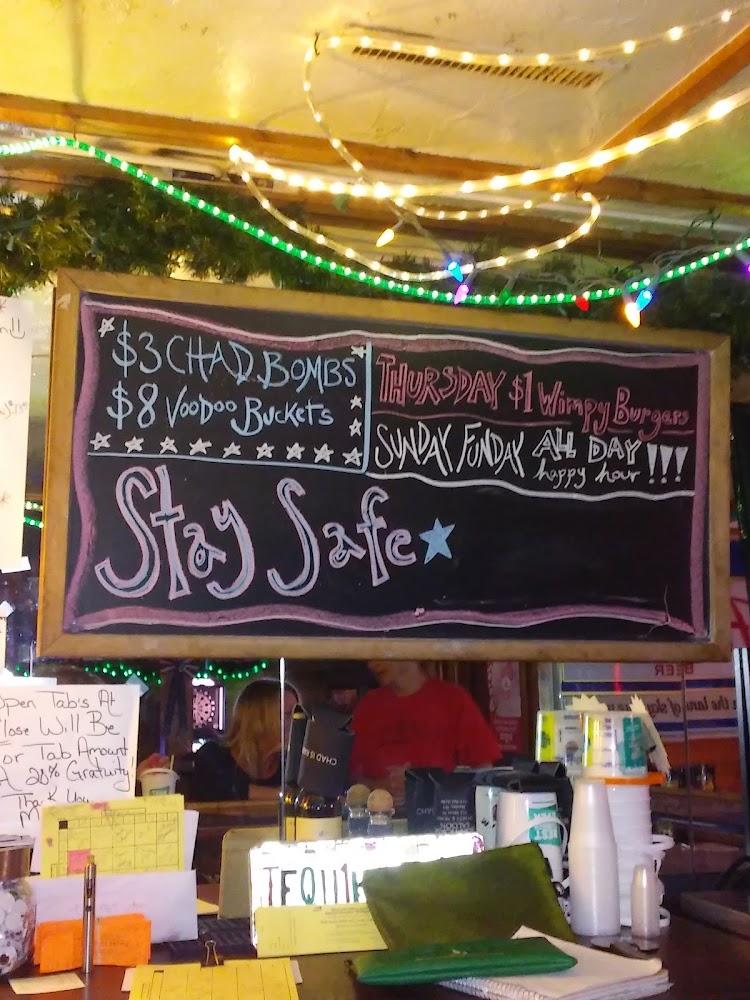 $3 CHAD BOMBS
$8 VOODOO BUCKETS
THURSDAY $1 Wimpy Burgers
SUNDAY FUNDAY ALL DAY
happy hour !!!
Stay Safe
Open Tab's At
Close Will Be
For Tab Amount
20% Gratuity!
Thank You
CHAD IS
SALOON
BEER
the land of sky